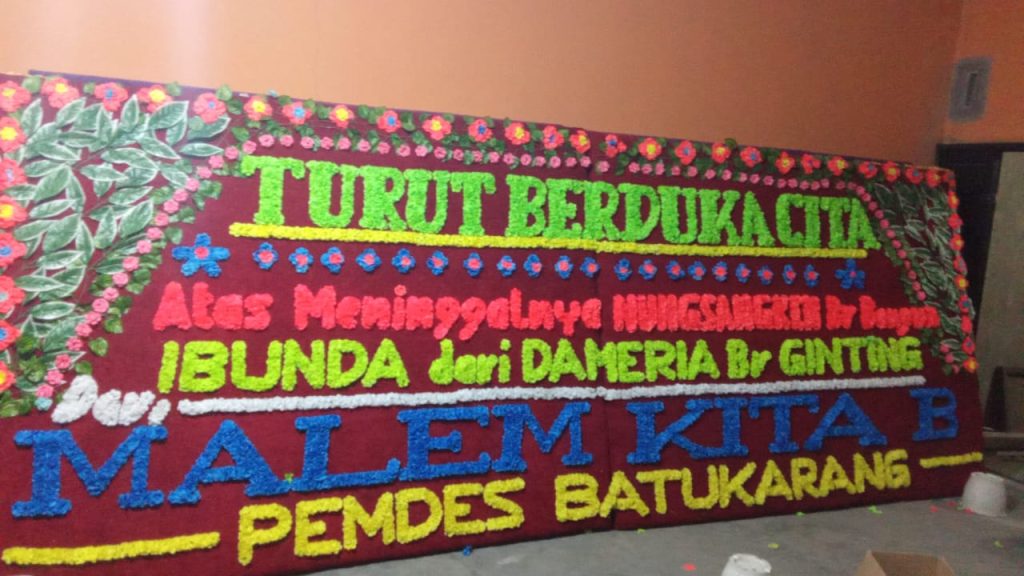 TURUT BERDUKA CITA
Atas Meninggalnya NUNGSANGKEN Br Bangun
IBUNDA dari DAMERIA Br GINTING
Dari
MALEM KITA B
PEMDES BATUKARANG